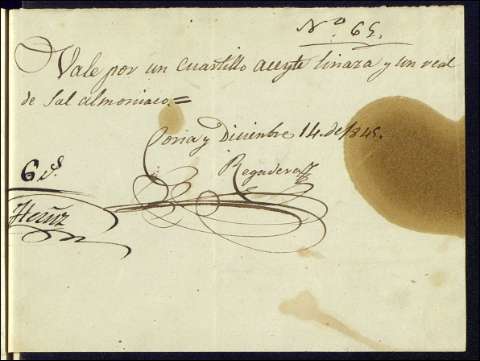 Nº 65.
Vale por un cuartillo aceyte linaza y un real
de sal almoniaco.=
Coria y Diciembre 14. de 1845.
Regadera
6 rs.